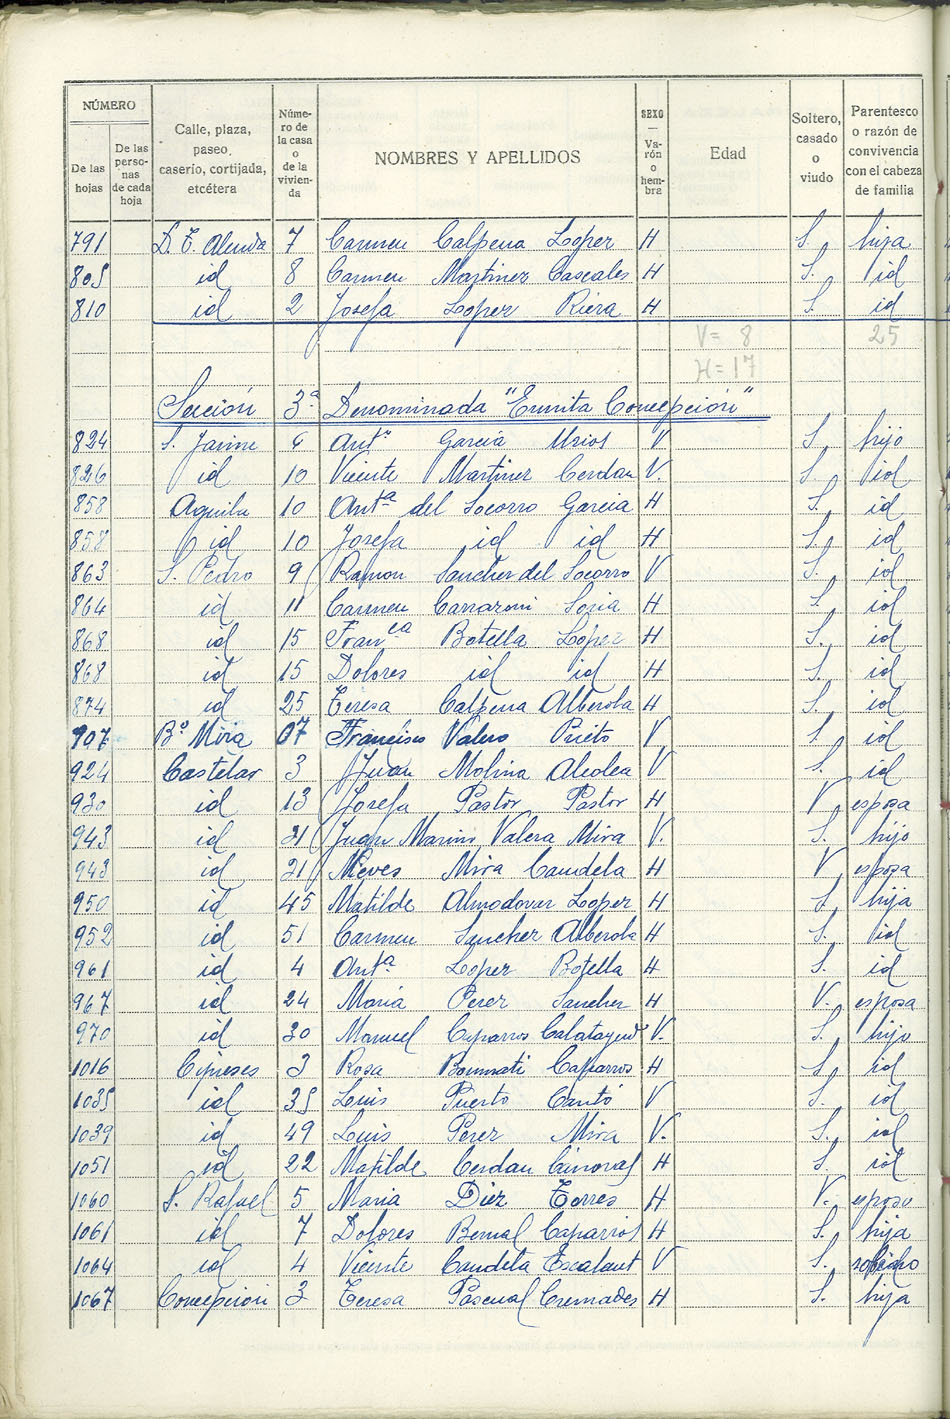 NÚMERO
De las hojas
De las personas de cada hoja
Calle, plaza, paseo, caserío, cortijada, etcétera
Número de la casa o de la vivienda
NOMBRES Y APELLIDOS
SEXO — Varón o hembra
Edad
Soltero, casado o viudo
Parentesco o razón de convivencia con el cabeza de familia
791 7 Carmen Calpena Lopez H S. hija
805 id 8 Carmen Martinez Cascales H S. id
810 id 2 Josefa Lopez Riera H S. id
V= 8 25
H=17
Sección 3ª Denominada "Ermita Concepción"
824 S. Jaime Antº Garcia Mrios V S. hijo
826 id 10 Vicente Martinez Cerdan V. S. id
858 Aguila 10 Antª del Socorro Garcia H S. id
858 id 10 Josefa id id H S. id
863 S. Pedro 9 Ramon Sanchez del Socorro V S. id
864 id 11 Carmen Soria H S. id
868 id 15 Franca Botella Lopez H S. id
868 id 15 Dolores id id H S. id
874 id 25 Teresa Calpena Alberola H S. id
907 Bº Mira 07 Francisco Valero Prieto V S. id
924 Castelar 3 Juan Molina Alcolea V S. id
930 id 13 Josefa Pastor Pastor H V. esposa
943 id 21 Juan Marino Valera Mira V. S. hijo
943 id 21 Nieves Mira Candela H V esposa
950 id 45 Matilde Almodovar Lopez H S. hija
952 id 51 Carmen Sanchez Alberola H S. id
961 id 4 Antª Lopez Botella H S. id
967 id 24 Maria Perez Sanchez H V. esposa
970 id 30 Manuel Caparros Calatayud V. S. hijo
1016 Cipreses 3 Rosa Bonmati Caparros H S. id
1035 id 35 Luis Puerto Cantó V S. id
1039 id 49 Luis Perez Mira V. S. id
1051 id 22 Matilde Cerdan H S. id
1060 S. Rafael 5 Maria Diez Torres H V. esposa
1061 id 7 Dolores Bernal Caparros H S. hija
1064 id 4 Vicente Candela Escalant V S. sobrino
1067 Concepcion 3 Teresa Pascual Cremades H S. hija